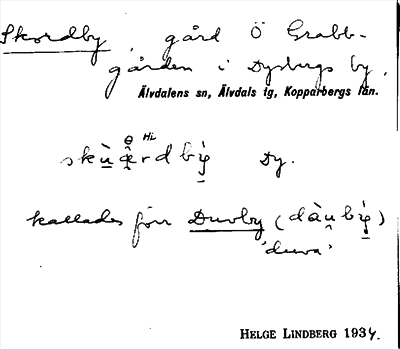 Skordby, gård Ö Grabb-
gården i Dysbergs by.
Älvdalens sn, Älvdals tg, Kopparbergs län.
Dy.
kallades förr Duvby (dàu̯bỳ)
'duva'
HELGE LINDBERG 1934.